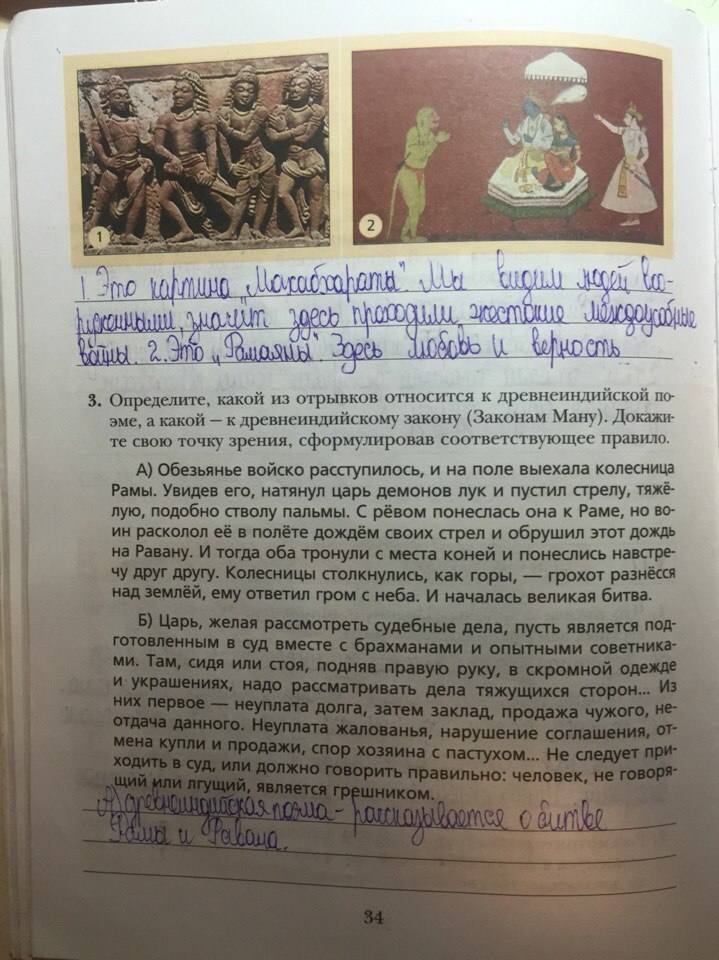 1
2
1. Это картина „Махабхараты". Мы видим людей воо-
руженными, значит здесь проходили жестокие междоусобные
войны. 2. Это „Рамаяны". Здесь любовь и верность
3. Определите, какой из отрывков относится к древнеиндийской по-
эме, а какой — к древнеиндийскому закону (Законам Ману). Докажи-
те свою точку зрения, сформулировав соответствующее правило.
А) Обезьянье войско расступилось, и на поле выехала колесница
Рамы. Увидев его, натянул царь демонов лук и пустил стрелу, тяжё-
лую, подобно стволу пальмы. С рёвом понеслась она к Раме, но во-
ин расколол её в полёте дождём своих стрел и обрушил этот дождь
на Равану. И тогда оба тронули с места коней и понеслись навстре-
чу друг другу. Колесницы столкнулись, как горы, — грохот разнёсся
над землёй, ему ответил гром с неба. И началась великая битва.
Б) Царь, желая рассмотреть судебные дела, пусть является под-
готовленным в суд вместе с брахманами и опытными советника-
ми. Там, сидя или стоя, подняв правую руку, в скромной одежде
и украшениях, надо рассматривать дела тяжущихся сторон... Из
них первое — неуплата долга, затем заклад, продажа чужого, не-
отдача данного. Неуплата жалованья, нарушение соглашения, от-
мена купли и продажи, спор хозяина с пастухом... Не следует при-
ходить в суд, или должно говорить правильно: человек, не говоря-
щий или лгущий, является грешником.
А) древнеиндийская поэма - рассказывается о битве
Рамы и Равана.
34